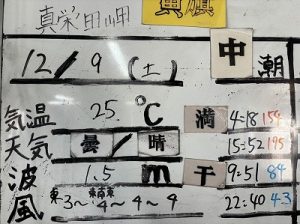 真栄田岬 黄旗
12/9(土) 中潮
気温 25.℃ 満 4:18 154
天気 曇/晴 15:52 195
波 1.5m 干 9:51 84
風 東3～東南東4～4～9 22:40 43